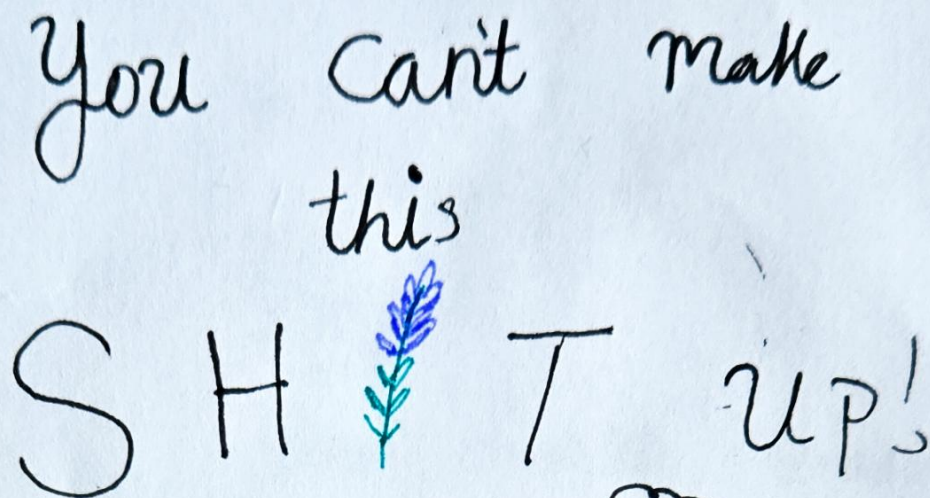 You can't make
this
SHIT up!